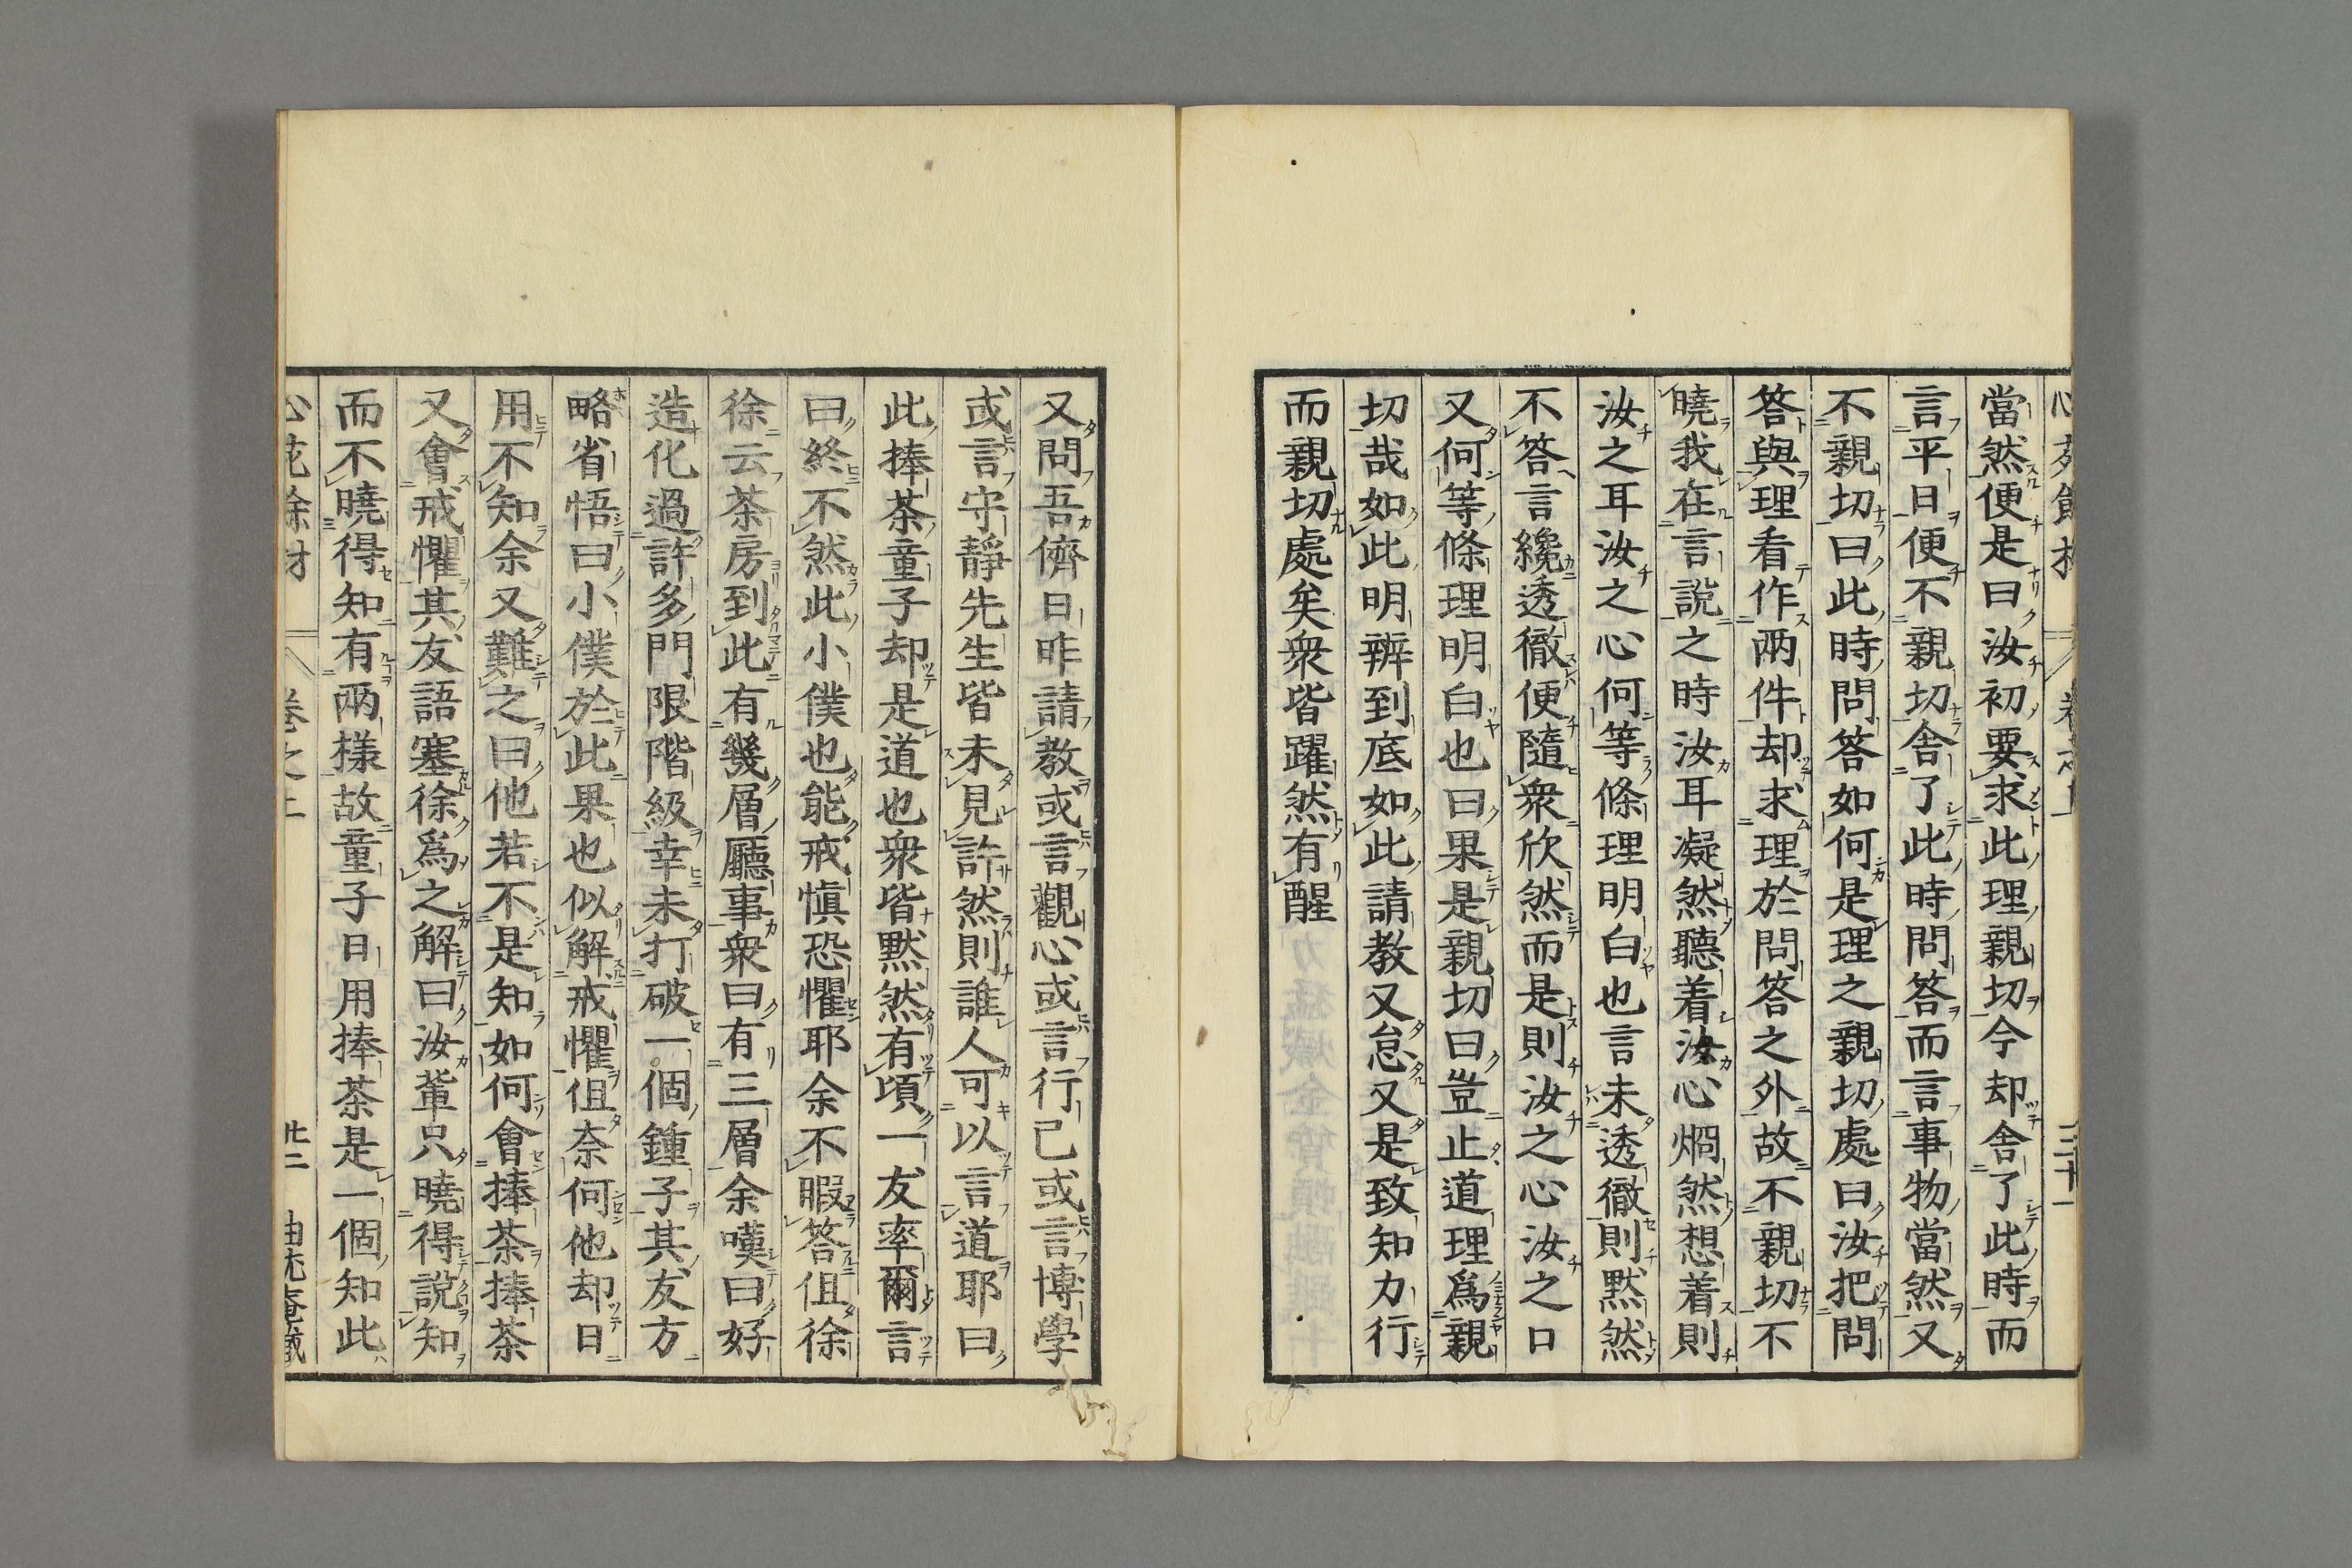 當然便是曰汝初要求此理親切今却舎了此時而
言平日便不親切舎了此時問答而言事物當然又
不親切曰此時問答如何是理之親切處曰汝把問
答與理看作兩件却求理於問答之外故不親切不
曉我在言說之時汝耳凝然聽着汝心烱然想着則
汝之耳汝之心何等條理明白也言未透徹則默然
不答言纔透徹便隨衆欣然而是則汝之心汝之口
又何等條理明白也曰果是親切曰豈止道理爲親
切哉如此明辨到底如此請教又怠又是致知力行
而親切處矣衆皆躍然有醒
又問吾儕日昨請教或言觀心或言行己或言博學
或言守靜先生皆未見許然則誰人可以言道耶曰
此捧茶童子却是道也衆皆默然有頃一友率爾言
曰終不然此小僕也能戒愼恐懼耶余不暇答但徐
徐云茶房到此有幾層廳事衆曰有三層余嘆曰好
造化過許多門限階級幸未打破一個鍾子其友方
略省悟曰小僕於此果也似解戒懼但奈何他却日
用不知余又難之曰他若不是知如何會捧茶捧茶
又會戒懼其友語塞徐爲之解曰汝輩只曉得說知
而不曉得知有兩樣故童子日用捧茶是一個知此
卷之上